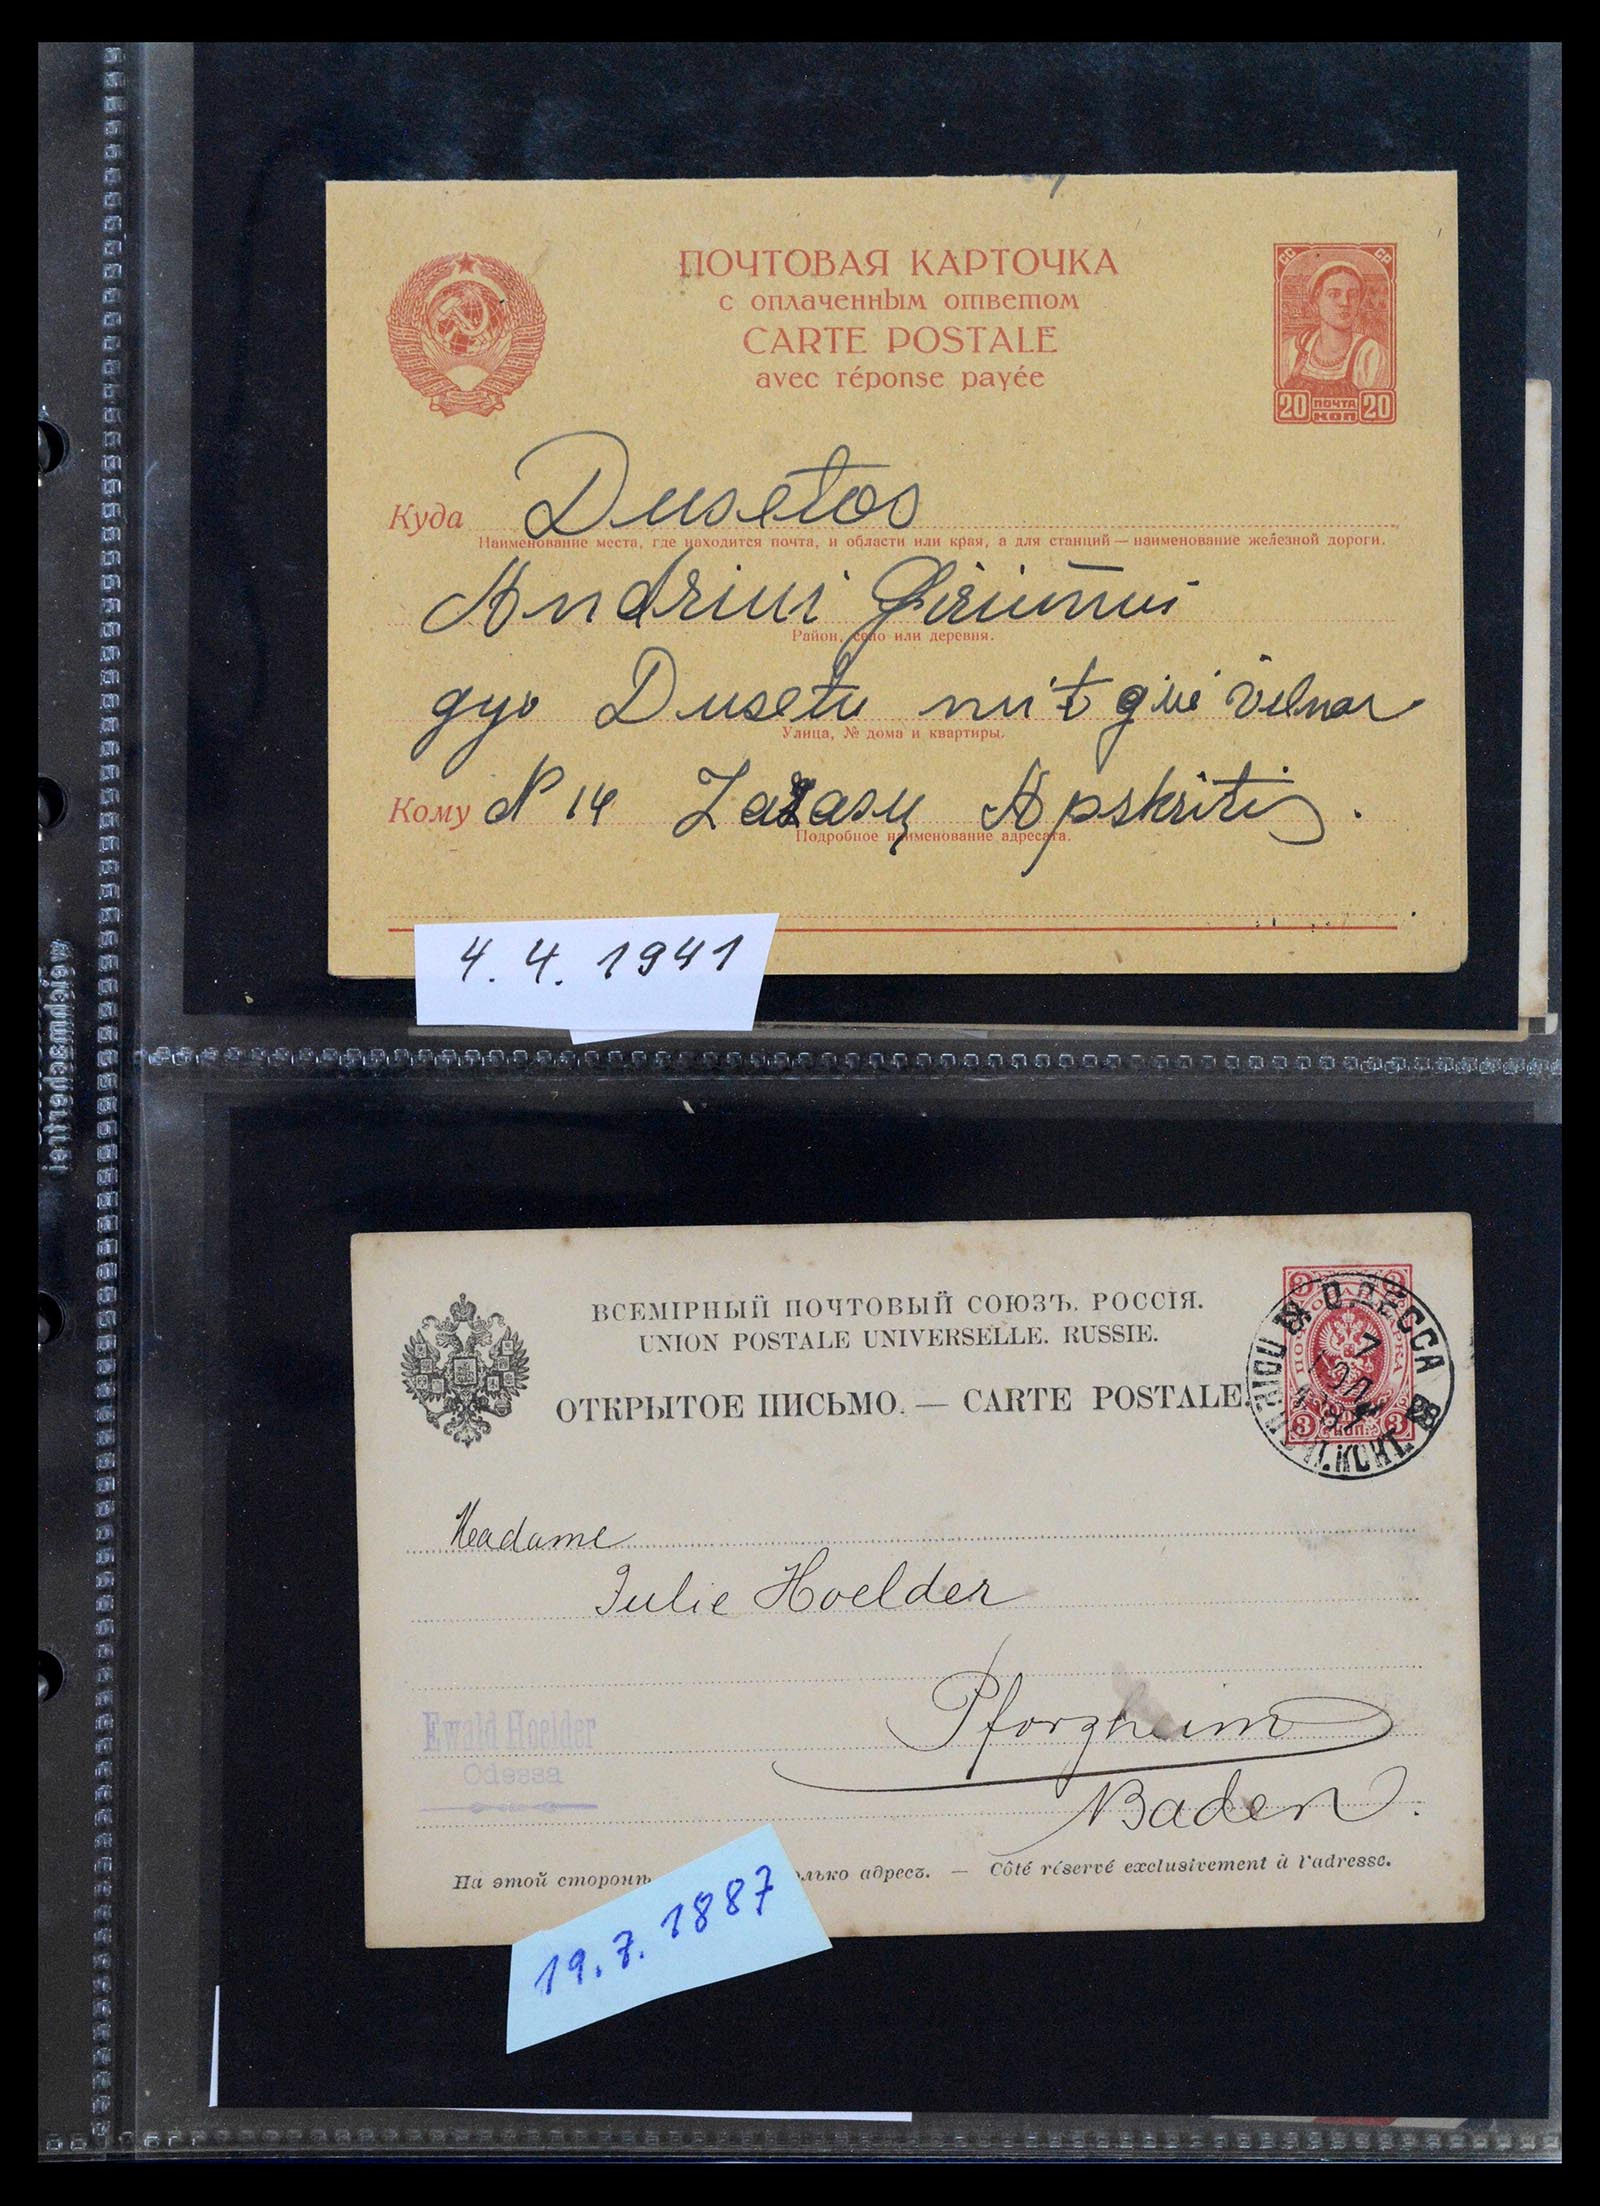 ПОЧТОВАЯ КАРТОЧКА
с оплаченным ответом
CARTE POSTALE
avec réponse payée
СС СР
20 ПОЧТА КОП 20
Куда Dusetos
Наименование места, где находится почта, и области или края, а для станций — наименование железной дороги.
Andriui
Район, село или деревня.
gyv Dusetu
Улица, № дома и квартиры.
Кому N 14 Zarasų Apskritis.
Подробное наименование адресата.
4.4.1941
ВСЕМІРНЫЙ ПОЧТОВЫЙ СОЮЗЪ. РОССІЯ.
UNION POSTALE UNIVERSELLE. RUSSIE.
ОТКРЫТОЕ ПИСЬМО. — CARTE POSTALE.
ОДЕССА
7
ІЮЛ
Madame
Julie Hoelder
Pforzheim
Baden.
Ewald Hoelder
Odessa
На этой сторонѣ олько адресъ. — Côté réservé exclusivement à l'adresse.
19.7.1887